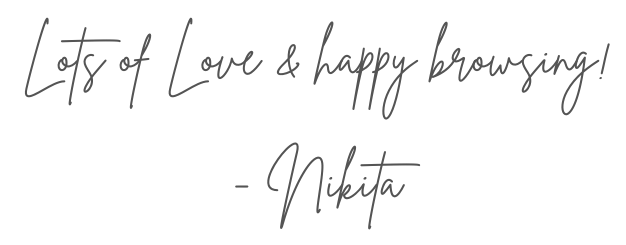 Lots of Love & happy browsing!
- Nikita